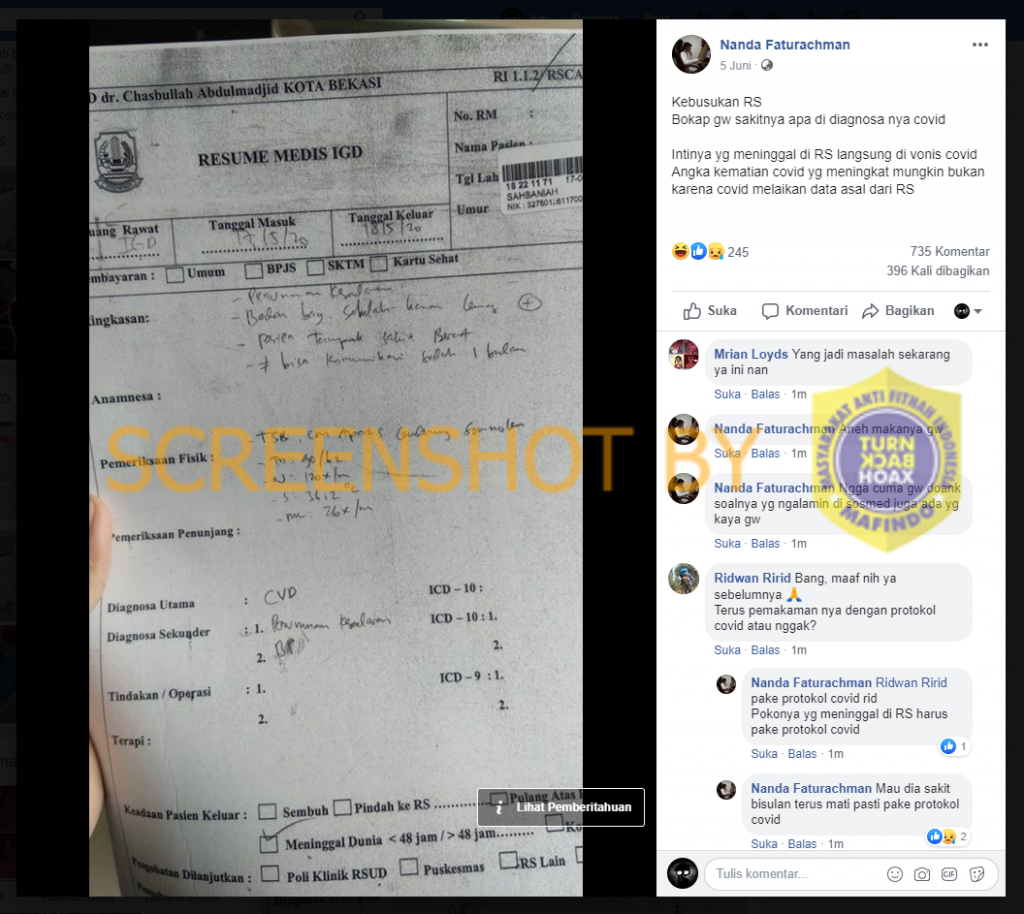 D dr. Chasbullah Abdulmadjid KOTA BEKASI
RI 1.1.2/ RSCA
RESUME MEDIS IGD
No. RM :
Nama Pasien :
Tgl Lah
Umur
18 22 11 71 17-0
SAHBANIAH
uang Rawat
IGD
Tanggal Masuk
17/5/20
Tanggal Keluar
18/5/20
mbayaran : Umum BPJS SKTM Kartu Sehat
ingkasan:
- Penurunan Kesadaran
- Badan bag. sebelah kanan lemas +
- pasien tampak sakit Berat
- bisa komunikasi sudah 1 bulan
Anamnesa :
Pemeriksaan Fisik :
- N : 120x/m
- S : 36,2 °C
- RR : 26x/m
Pemeriksaan Penunjang :
Diagnosa Utama : CVD
ICD – 10 :
Diagnosa Sekunder : 1. Penurunan Kesadaran
ICD – 10 : 1.
2.
2.
Tindakan / Operasi : 1.
ICD – 9 : 1.
2.
2.
Terapi :
Keadaan Pasien Keluar : Sembuh Pindah ke RS Pulang Atas
Meninggal Dunia < 48 jam / > 48 jam
Pengobatan Dilanjutkan : Poli Klinik RSUD Puskesmas RS Lain
Lihat Pemberitahuan
SCREENSHOT BY
MASYARAKAT ANTI FITNAH INDONESIA
TURN
BACK
HOAX
MAFINDO
Nanda Faturachman
5 Juni
Kebusukan RS
Bokap gw sakitnya apa di diagnosa nya covid
Intinya yg meninggal di RS langsung di vonis covid
Angka kematian covid yg meningkat mungkin bukan
karena covid melaikan data asal dari RS
245
735 Komentar
396 Kali dibagikan
Suka Komentari Bagikan
Mrian Loyds Yang jadi masalah sekarang
ya ini nan
Suka · Balas · 1m
Nanda Faturachman Aneh makanya gw
Suka · Balas · 1m
Nanda Faturachman Ngga cuma gw doank
soalnya yg ngalamin di sosmed juga ada yg
kaya gw
Suka · Balas · 1m
Ridwan Ririd Bang, maaf nih ya
sebelumnya 🙏
Terus pemakaman nya dengan protokol
covid atau nggak?
Suka · Balas · 1m
Nanda Faturachman Ridwan Ririd
pake protokol covid rid
Pokonya yg meninggal di RS harus
pake protokol covid
1
Suka · Balas · 1m
Nanda Faturachman Mau dia sakit
bisulan terus mati pasti pake protokol
covid
2
Suka · Balas · 1m
Tulis komentar...
GIF